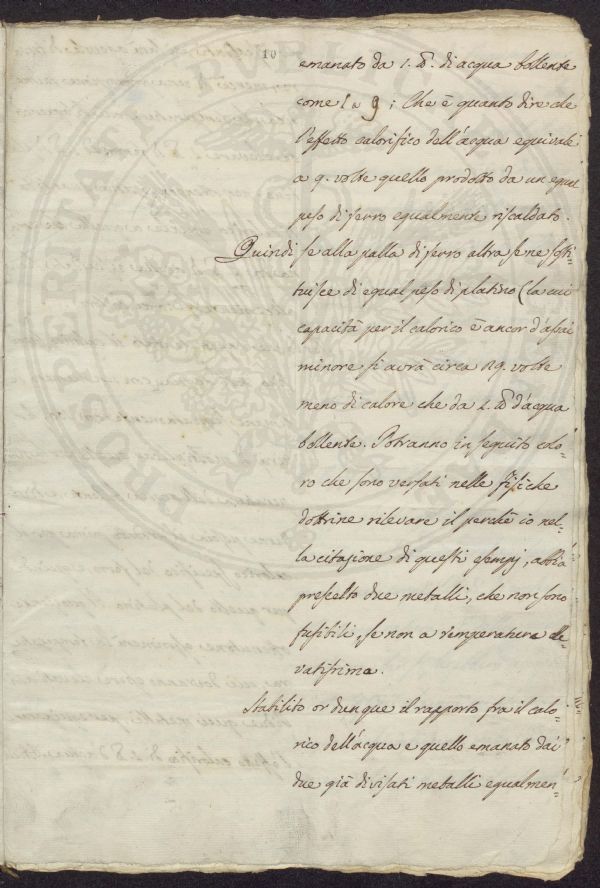 10
emanato da 1. ℔. di acqua bollente
come 1 a 9; Che è quanto dire che
l'effetto calorifico dell'acqua equivale
a 9. volte quello prodotto da un egual
peso di ferro egualmente riscaldato.
Quindi se alla palla di ferro altra se ne sosti-
tuisce di egual peso di platino (la cui
capacità per il calorico è ancor d'assai
minore si avrà circa 29. volte
meno di calore che da 1. ℔ d'acqua
bollente. Potranno in seguito colo-
ro che sono versati nelle fisiche
dottrine rilevare il perchè io nel-
la citazione di questi esempj, abbia
prescelto due metalli, che non sono
fusibili, se non a temperatura ele-
vatissima.
Stabilito or dunque il rapporto fra il calo-
rico dell'acqua e quello emanato dai
due già divisati metalli egualmen-